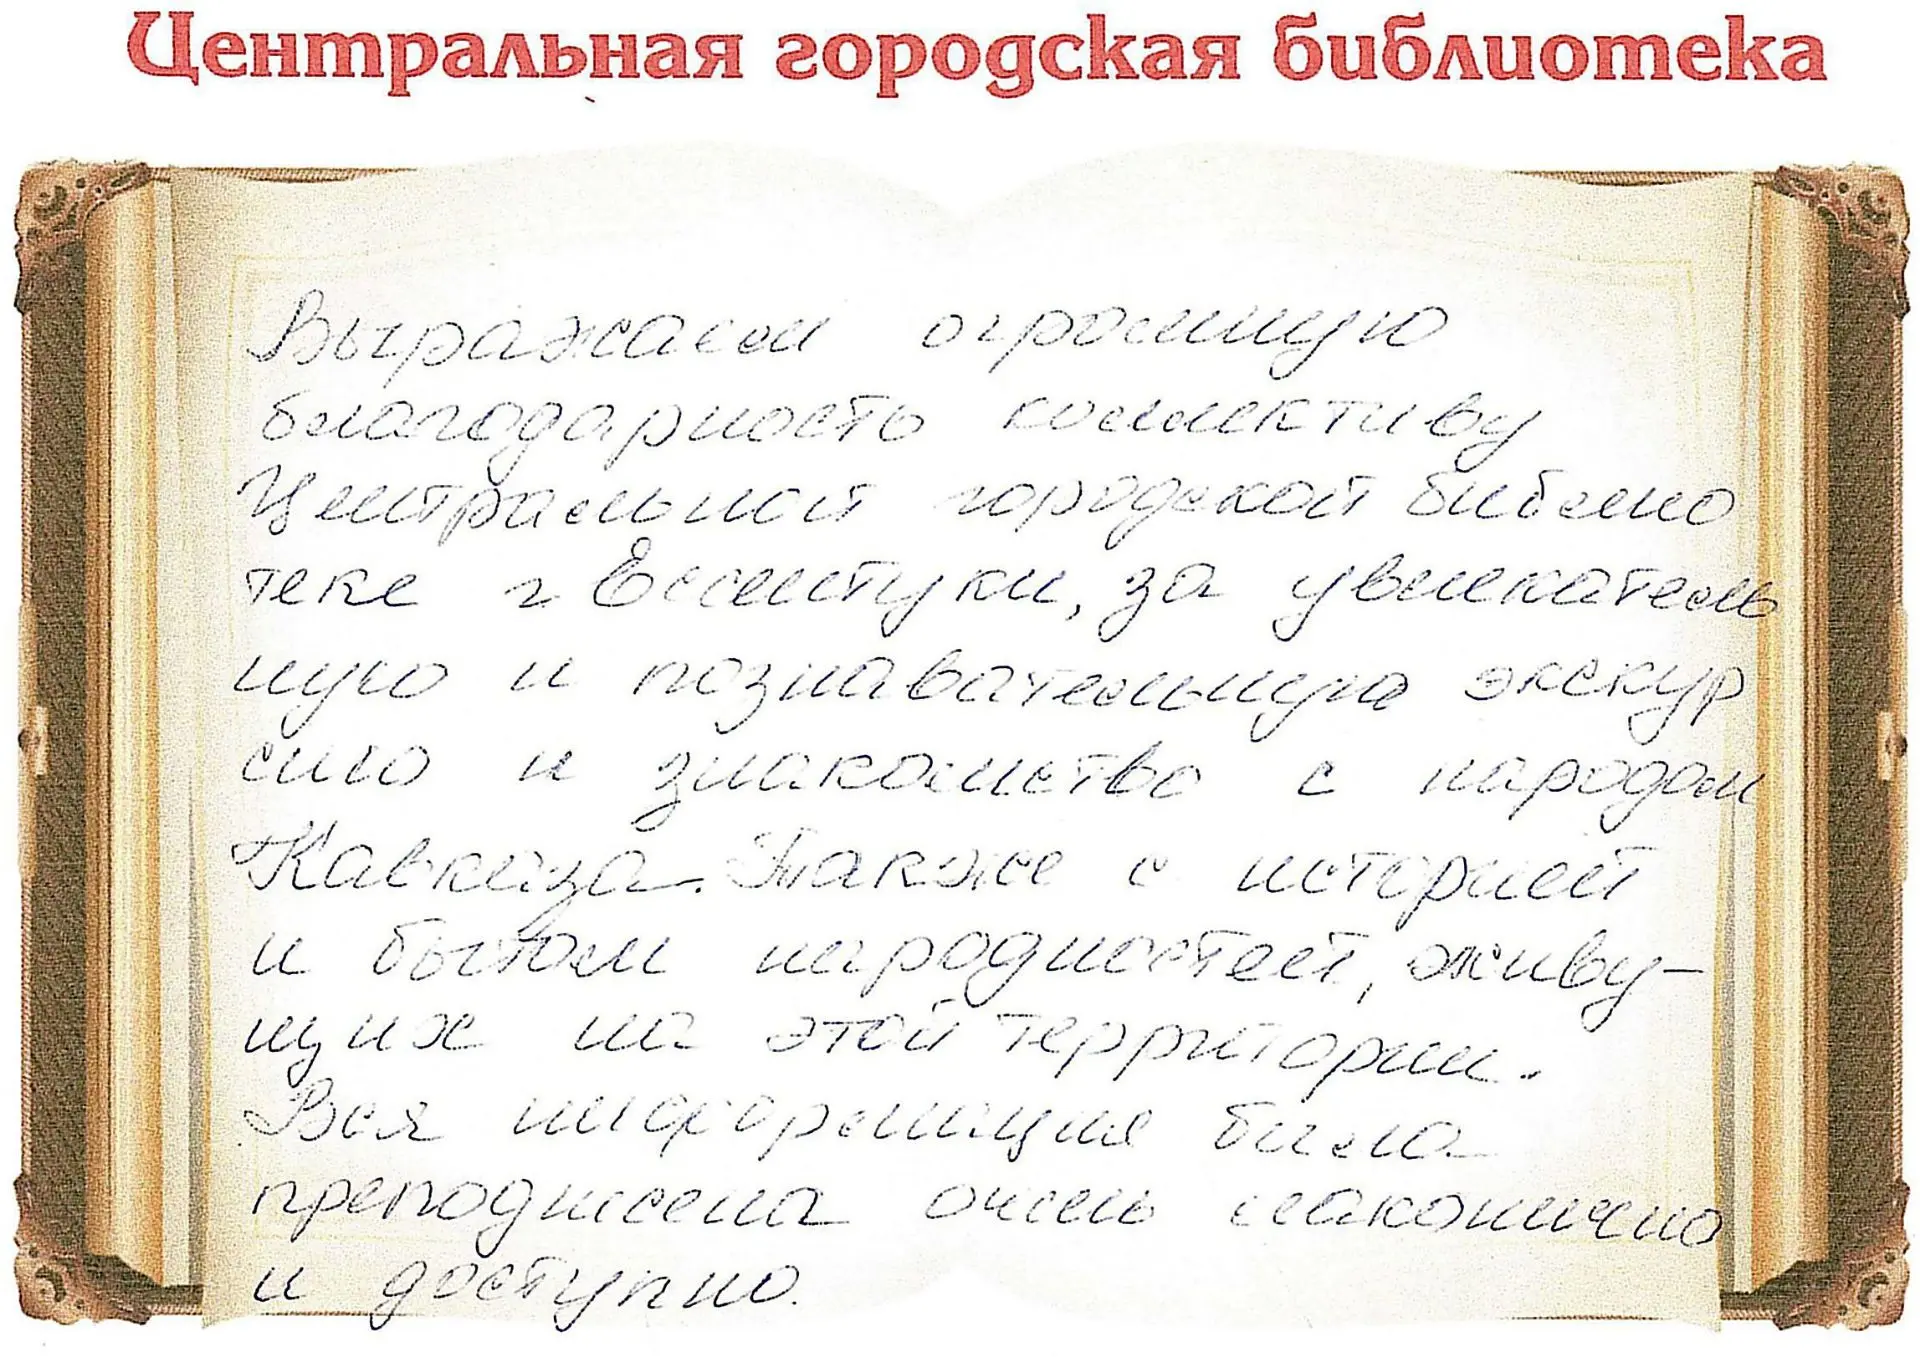 Центральная городская библиотека
Выражаем огромную
благодарность коллективу
Центральной городской библио
теке г Ессентуки, за увлекатель
ную и познавательную экскур
сию и знакомство с народом
Кавказа. Также с историей
и бытом народностей, живу-
щих на этой территории.
Вся информация была
преподнесена очень лаконично
и доступно.